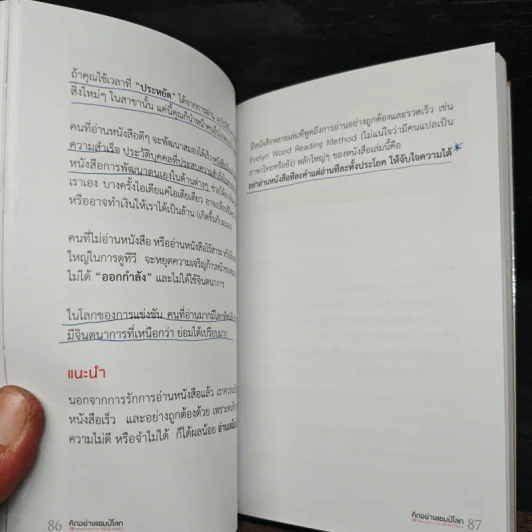 ถ้าคุณใช้เวลาที่ “ประหยัด” ได้จากการอ่าน
สิ่งใหม่ๆ ในสาขานั้น แค่นี้คุณก็นำหน้าคนอื่น
คนที่อ่านหนังสือดีๆ จะพัฒนาสมองได้เร็ว
ความสำเร็จ ประวัติบุคคลที่ประสบความสำเร็จ
หนังสือการพัฒนาตนเองในด้านต่างๆ ช่วยให้
เราเอง บางครั้งไอเดียแค่ไอเดียเดียว
หรืออาจทำเงินให้เราได้เป็นล้าน
คนที่ไม่อ่านหนังสือ หรืออ่านหนังสือไร้สาระ
ใหญ่ในการดูทีวี จะหยุดความเจริญก้าวหน้าของ
ไม่ได้ “ออกกำลัง” และไม่ได้ใช้จินตนาการ
ในโลกของการแข่งขัน คนที่อ่านมากมี
มีจินตนาการที่เหนือกว่า ย่อมได้เปรียบ
แนะนำ
นอกจากการรักการอ่านหนังสือแล้ว เราควร
หนังสือเร็ว และอย่างถูกต้องด้วย เพราะ
ความไม่ดี หรือจำไม่ได้ ก็ได้ผลน้อย
86 คิดอย่างแชมป์โลก
มีหนังสือหลายเล่มที่พูดถึงการอ่านอย่างถูกต้องและรวดเร็ว เช่น
Evelyn Wood Reading Method (ไม่แน่ใจว่ามีคนแปลเป็น
ภาษาไทยหรือยัง) หลักใหญ่ๆ ของหนังสือเล่มนี้คือ
อย่าอ่านหนังสือทีละคำแต่อ่านทีละทั้งประโยค ให้จับใจความได้
คิดอย่างแชมป์โลก 87